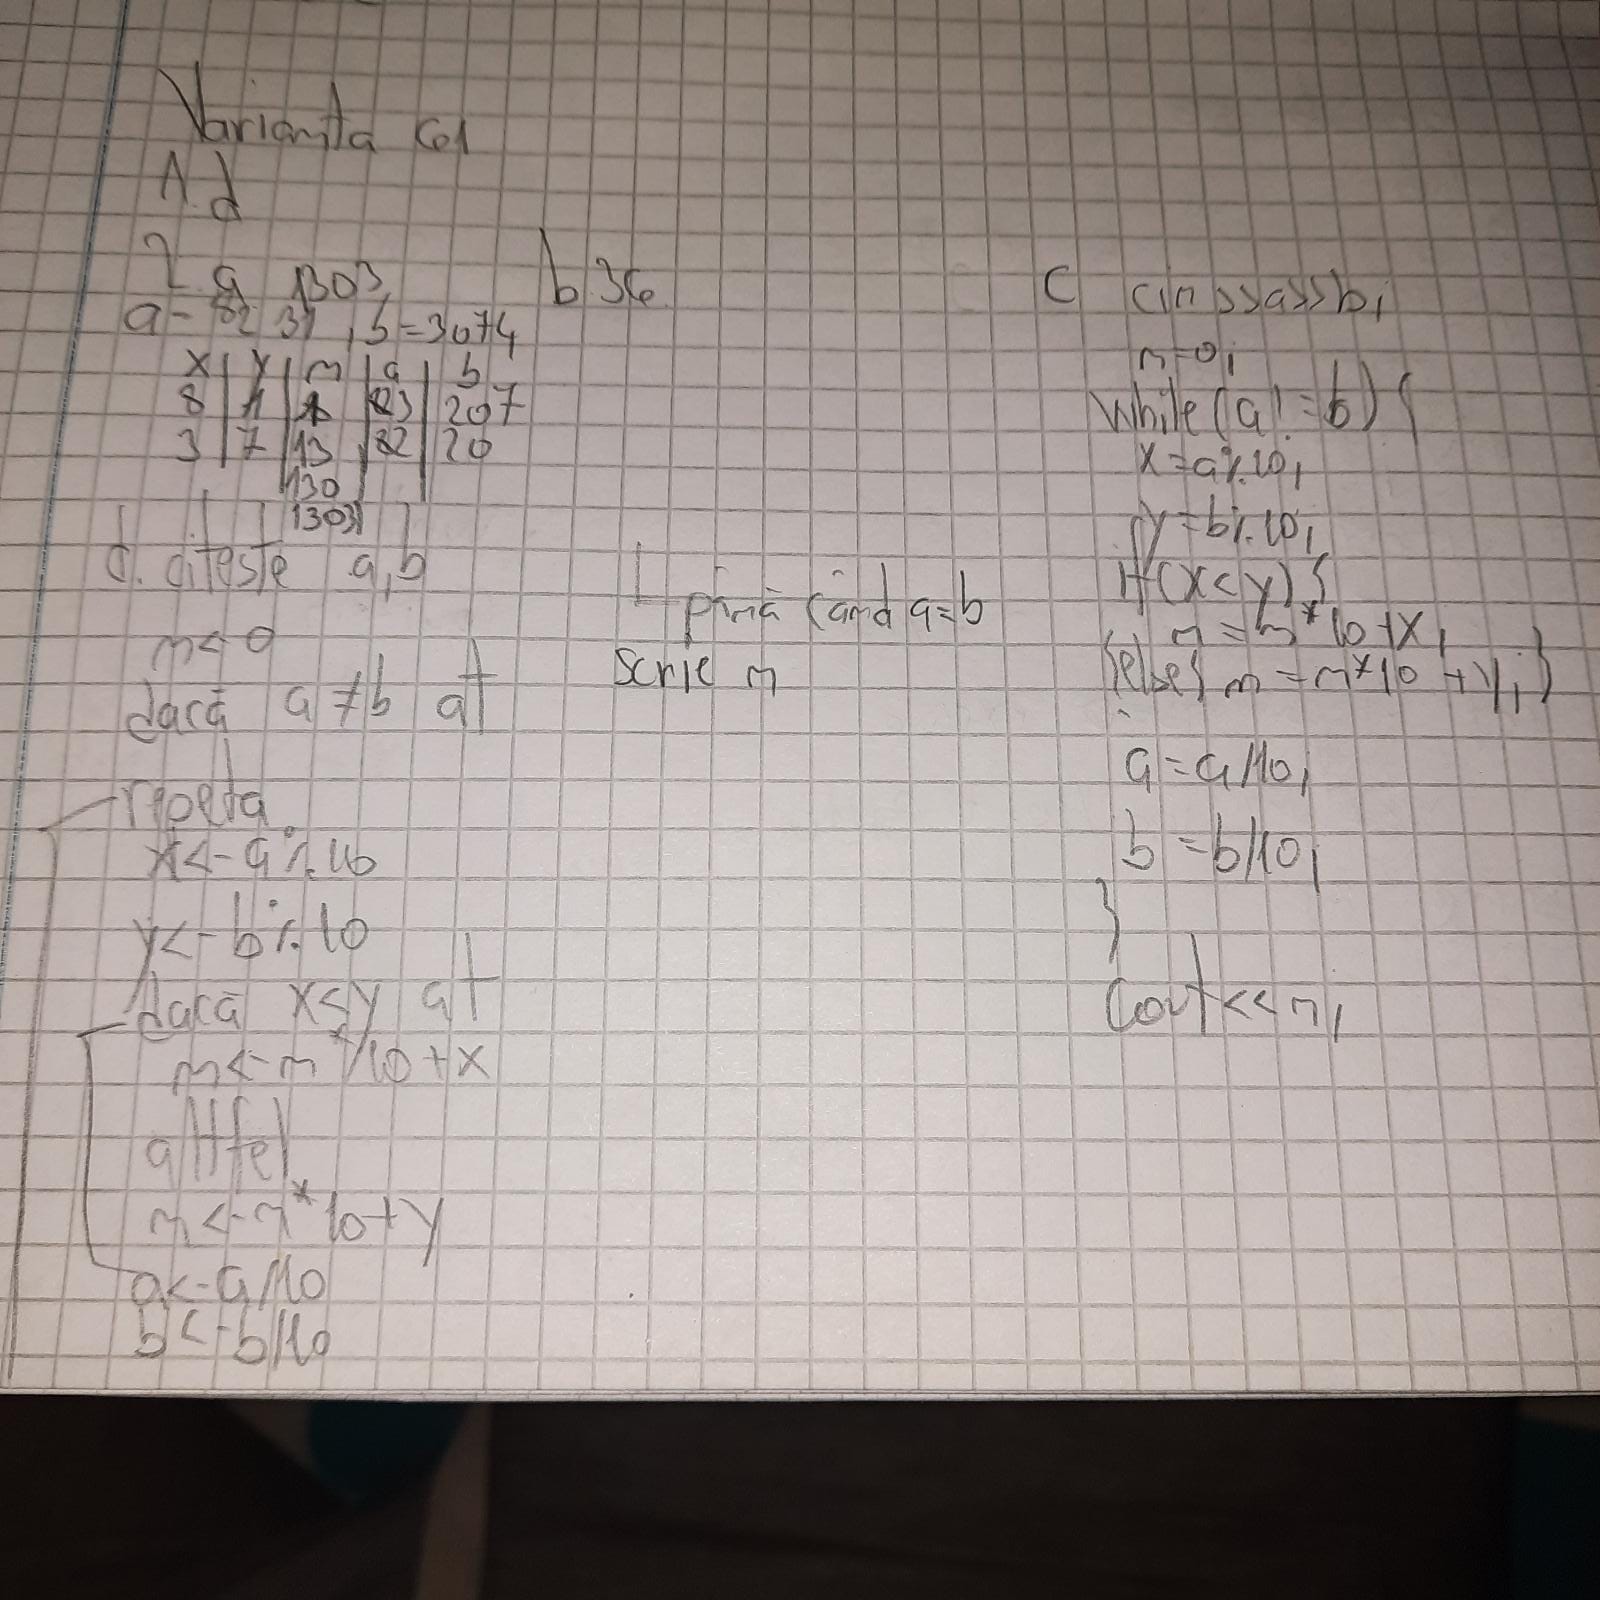 Varianta 61
1.d
2. a 1303
a = 8237, b = 3074
x | y | m | a | b
8 | 1 | 1 | 823 | 207
3 | 7 | 13 | 82 | 20
130
1303
d. citeste a,b
m <- 0
dacă a ≠ b at
repetă
x <- a % 10
y <- b % 10
dacă x < y at
m <- m * 10 + x
altfel
m <- m * 10 + y
a <- a/10
b <- b/10
b 36
până când a=b
scrie m
c cin>>a>>b;
n=0;
while(a!=b){
x=a%10;
y=b%10;
if(x<y){
n=n*10+x;
}else{ n=n*10+y;}
a=a/10;
b=b/10;
}
cout<<n;